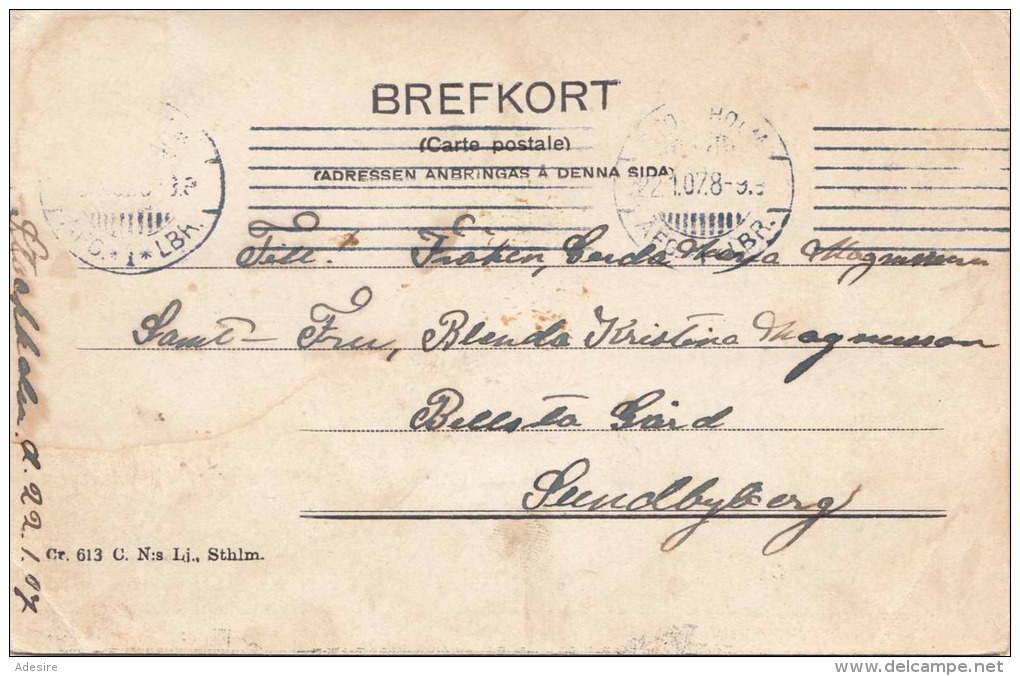 BREFKORT
(Carte postale)
(ADRESSEN ANBRINGAS Å DENNA SIDA)
HOLM
22.1.07.8-9.
AFG. LBR.
AFG. * 1 * LBR.
Till. Fröken, Gerda Maria Magnusson
Samt - Fru, Blenda Kristina Magnusson
Bellsta Gård
Sundbyberg
Cr. 613 C. N:s Lj., Sthlm.
Stockholm. d. 22.1.07
Adesire
www.delcampe.net